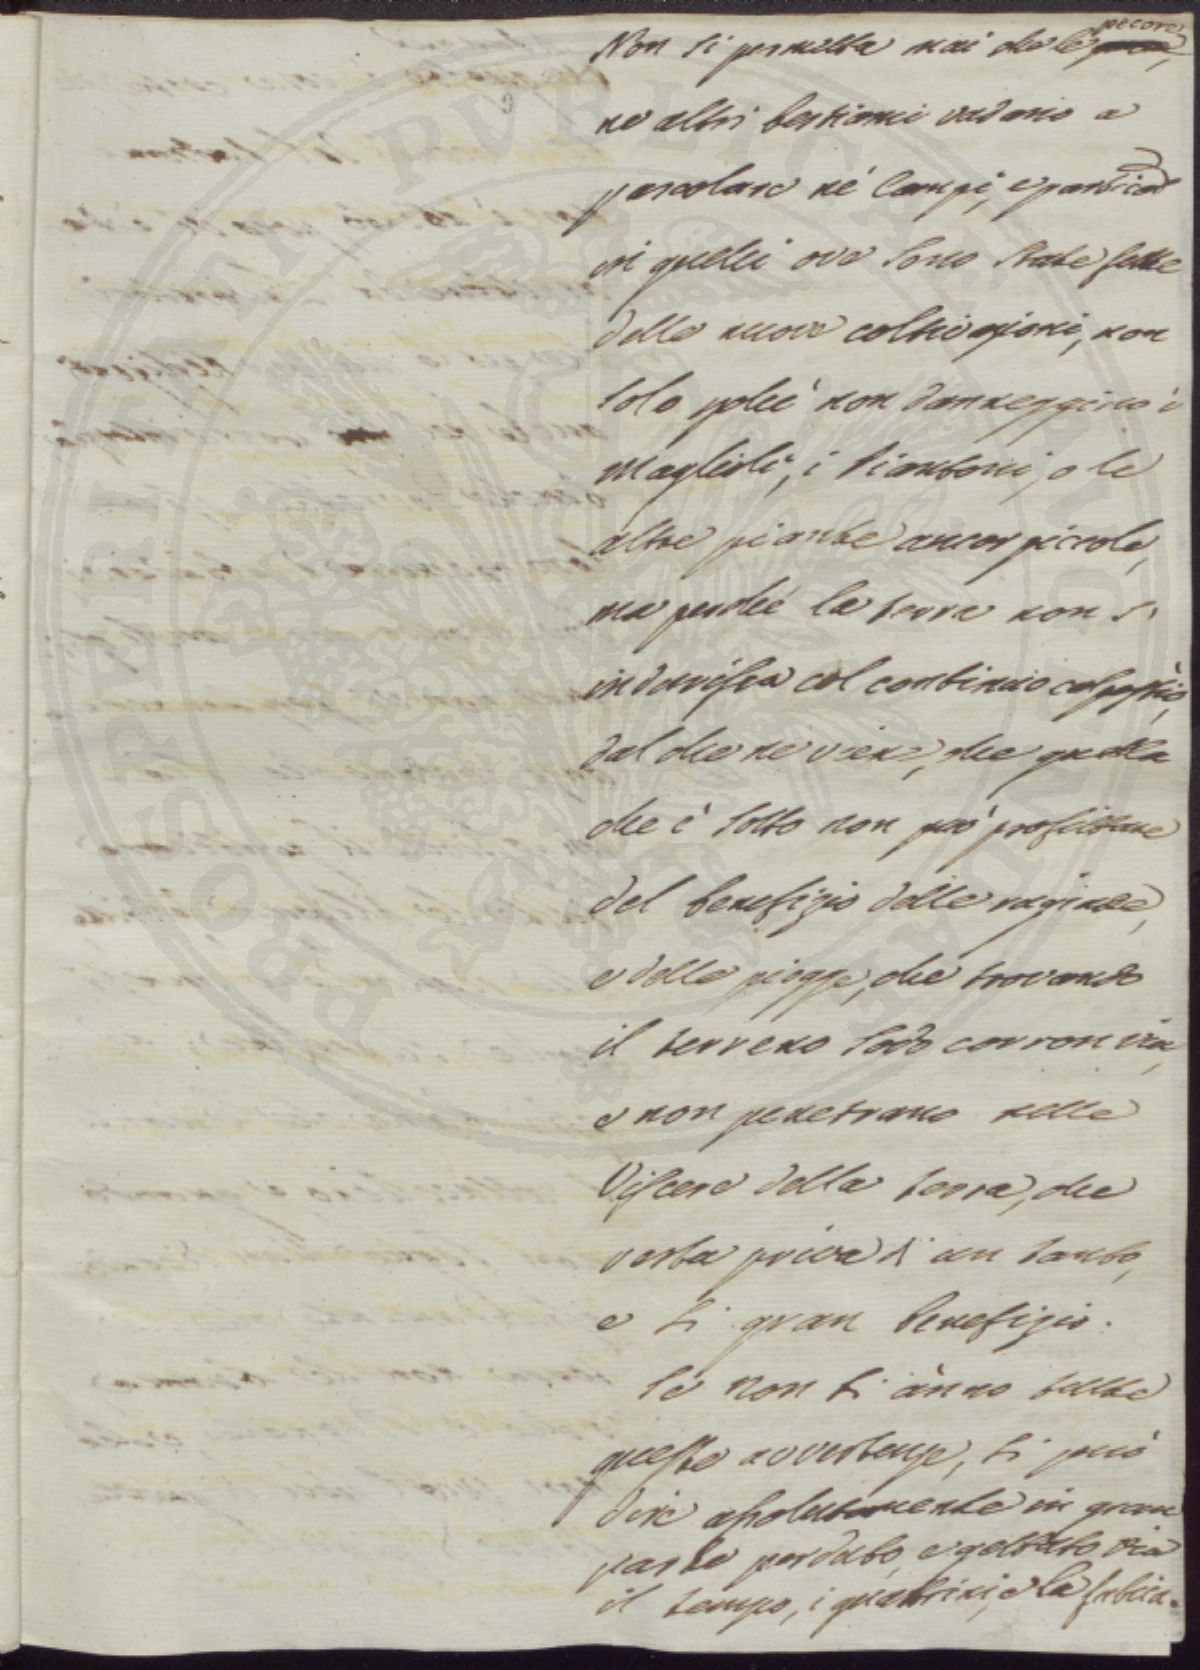 Non si permetta mai che le pecore,
ne altri bestiami vadano a
pascolare ne' Campi, e partico
in quelli ove sono state fatte
delle nuove coltivazioni, non
solo perchè non danneggino i
Maglioli, i Piantoni, o le
altre piante ancor piccole,
ma perchè la terra non s'
indurisca col continuo calpestio,
dal che ne viene, che quella
che è sotto non può profittare
del benefizio delle ruginade,
e delle piogge, che trovando
il terreno sodo corron via,
e non penetrano nelle
Viscere della terra, che
resta priva di un tanto,
e sì gran Benefizio.
Se non si ànno tutte
queste avvertenze, si può
dire assolutamente in gran
parte perduto, e gettato via
il tempo, i quattrini, e la fatica.
PROSPERITATI PVBLICAE AVGENDAE